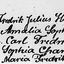 Fredrik Julius
Amalia Soph
Carl Fredri
Sophia Char
Maria Fredrik